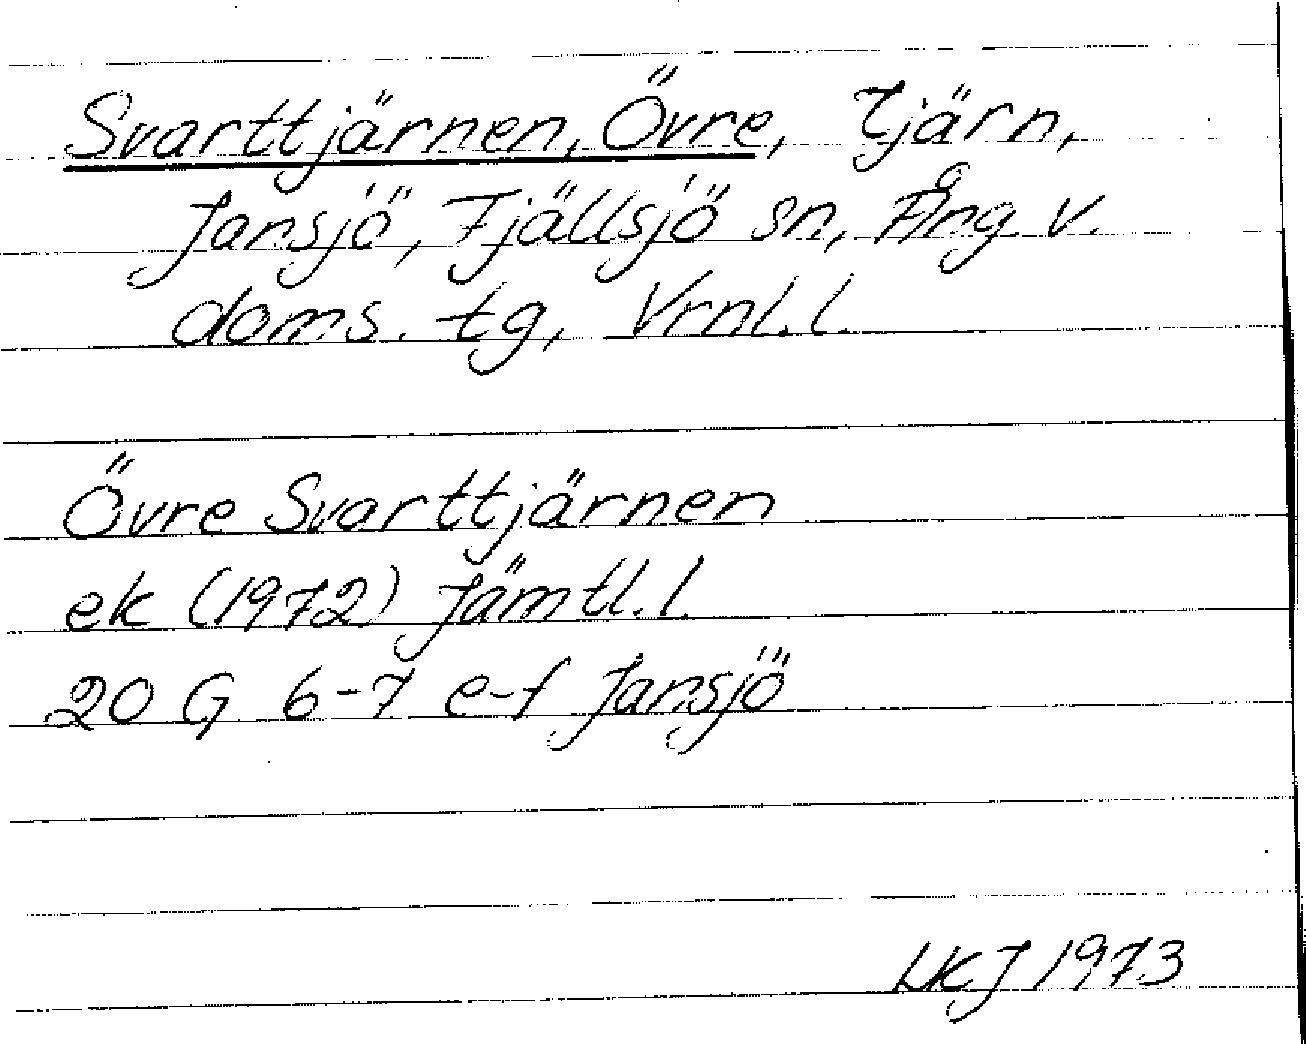 Svarttjärnen, Övre, Tjärn,
Jansjö, Fjällsjö sn, Ång. v.
doms. tg, Vrnl. l.
Övre Svarttjärnen
ek (1972) Jämtl. l.
20 G 6-7 e-f Jansjö
LKJ 1973